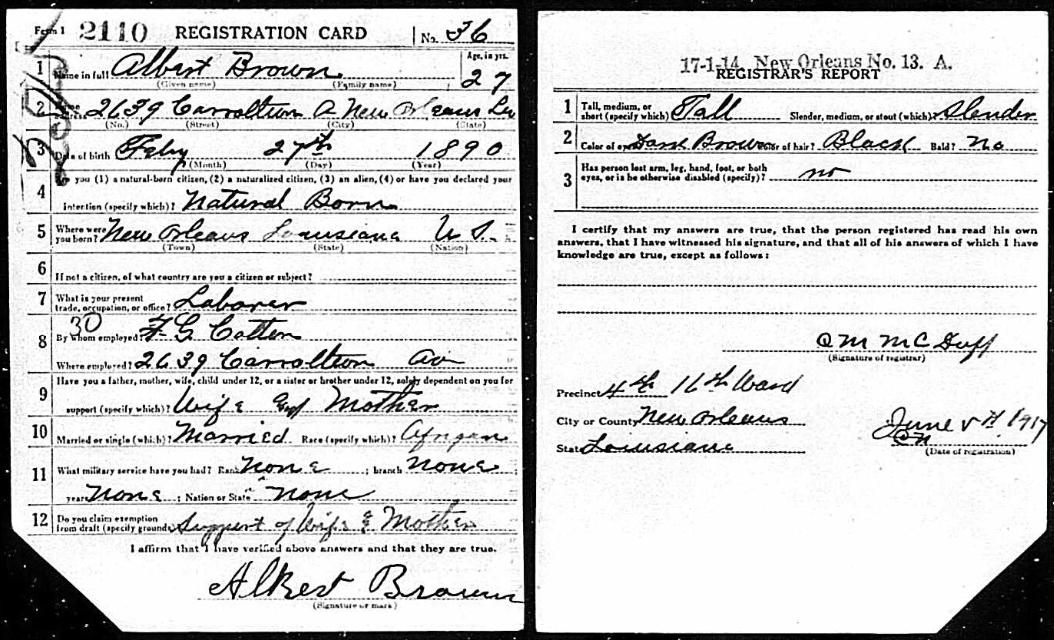 Form 1 2110 REGISTRATION CARD No. 36
1 Name in full Albert Brown Age, in yrs. 27
(Given name) (Family name)
2 2639 Carrollton A New Orleans La
(No.) (Street) (City) (State)
3 Date of birth Feby 27th 1890
(Month) (Day) (Year)
4 you (1) a natural-born citizen, (2) a naturalized citizen, (3) an alien, (4) or have you declared your
intention (specify which)? Natural Born
5 Where were you born? New Orleans Louisiana U S.
(Town) (State) (Nation)
6 If not a citizen, of what country are you a citizen or subject?
7 What is your present trade, occupation, or office? Laborer
30
8 By whom employed? F. G. Cotten
Where employed? 2639 Carrollton Av
9 Have you a father, mother, wife, child under 12, or a sister or brother under 12, solely dependent on you for
support (specify which)? Wife Mother
10 Married or single (which)? Married Race (specify which)? African
11 What military service have you had? Rank None ; branch None
years None ; Nation or State None
12 Do you claim exemption from draft (specify grounds)? Support of Wife & Mother
I affirm that I have verified above answers and that they are true.
Albert Brown
(Signature or mark)
17-1-14. New Orleans No. 13. A.
REGISTRAR'S REPORT
1 Tall, medium, or short (specify which)? Tall Slender, medium, or stout (which)? Slender
2 Color of eyes? Dark Brown Color of hair? Black Bald? No
3 Has person lost arm, leg, hand, foot, or both eyes, or is he otherwise disabled (specify)? no
I certify that my answers are true, that the person registered has read his own
answers, that I have witnessed his signature, and that all of his answers of which I have
knowledge are true, except as follows:
McDuff
(Signature of registrar)
Precinct 4th 16th Ward
City or County New Orleans
State Louisiana
June 5th 1917
(Date of registration)